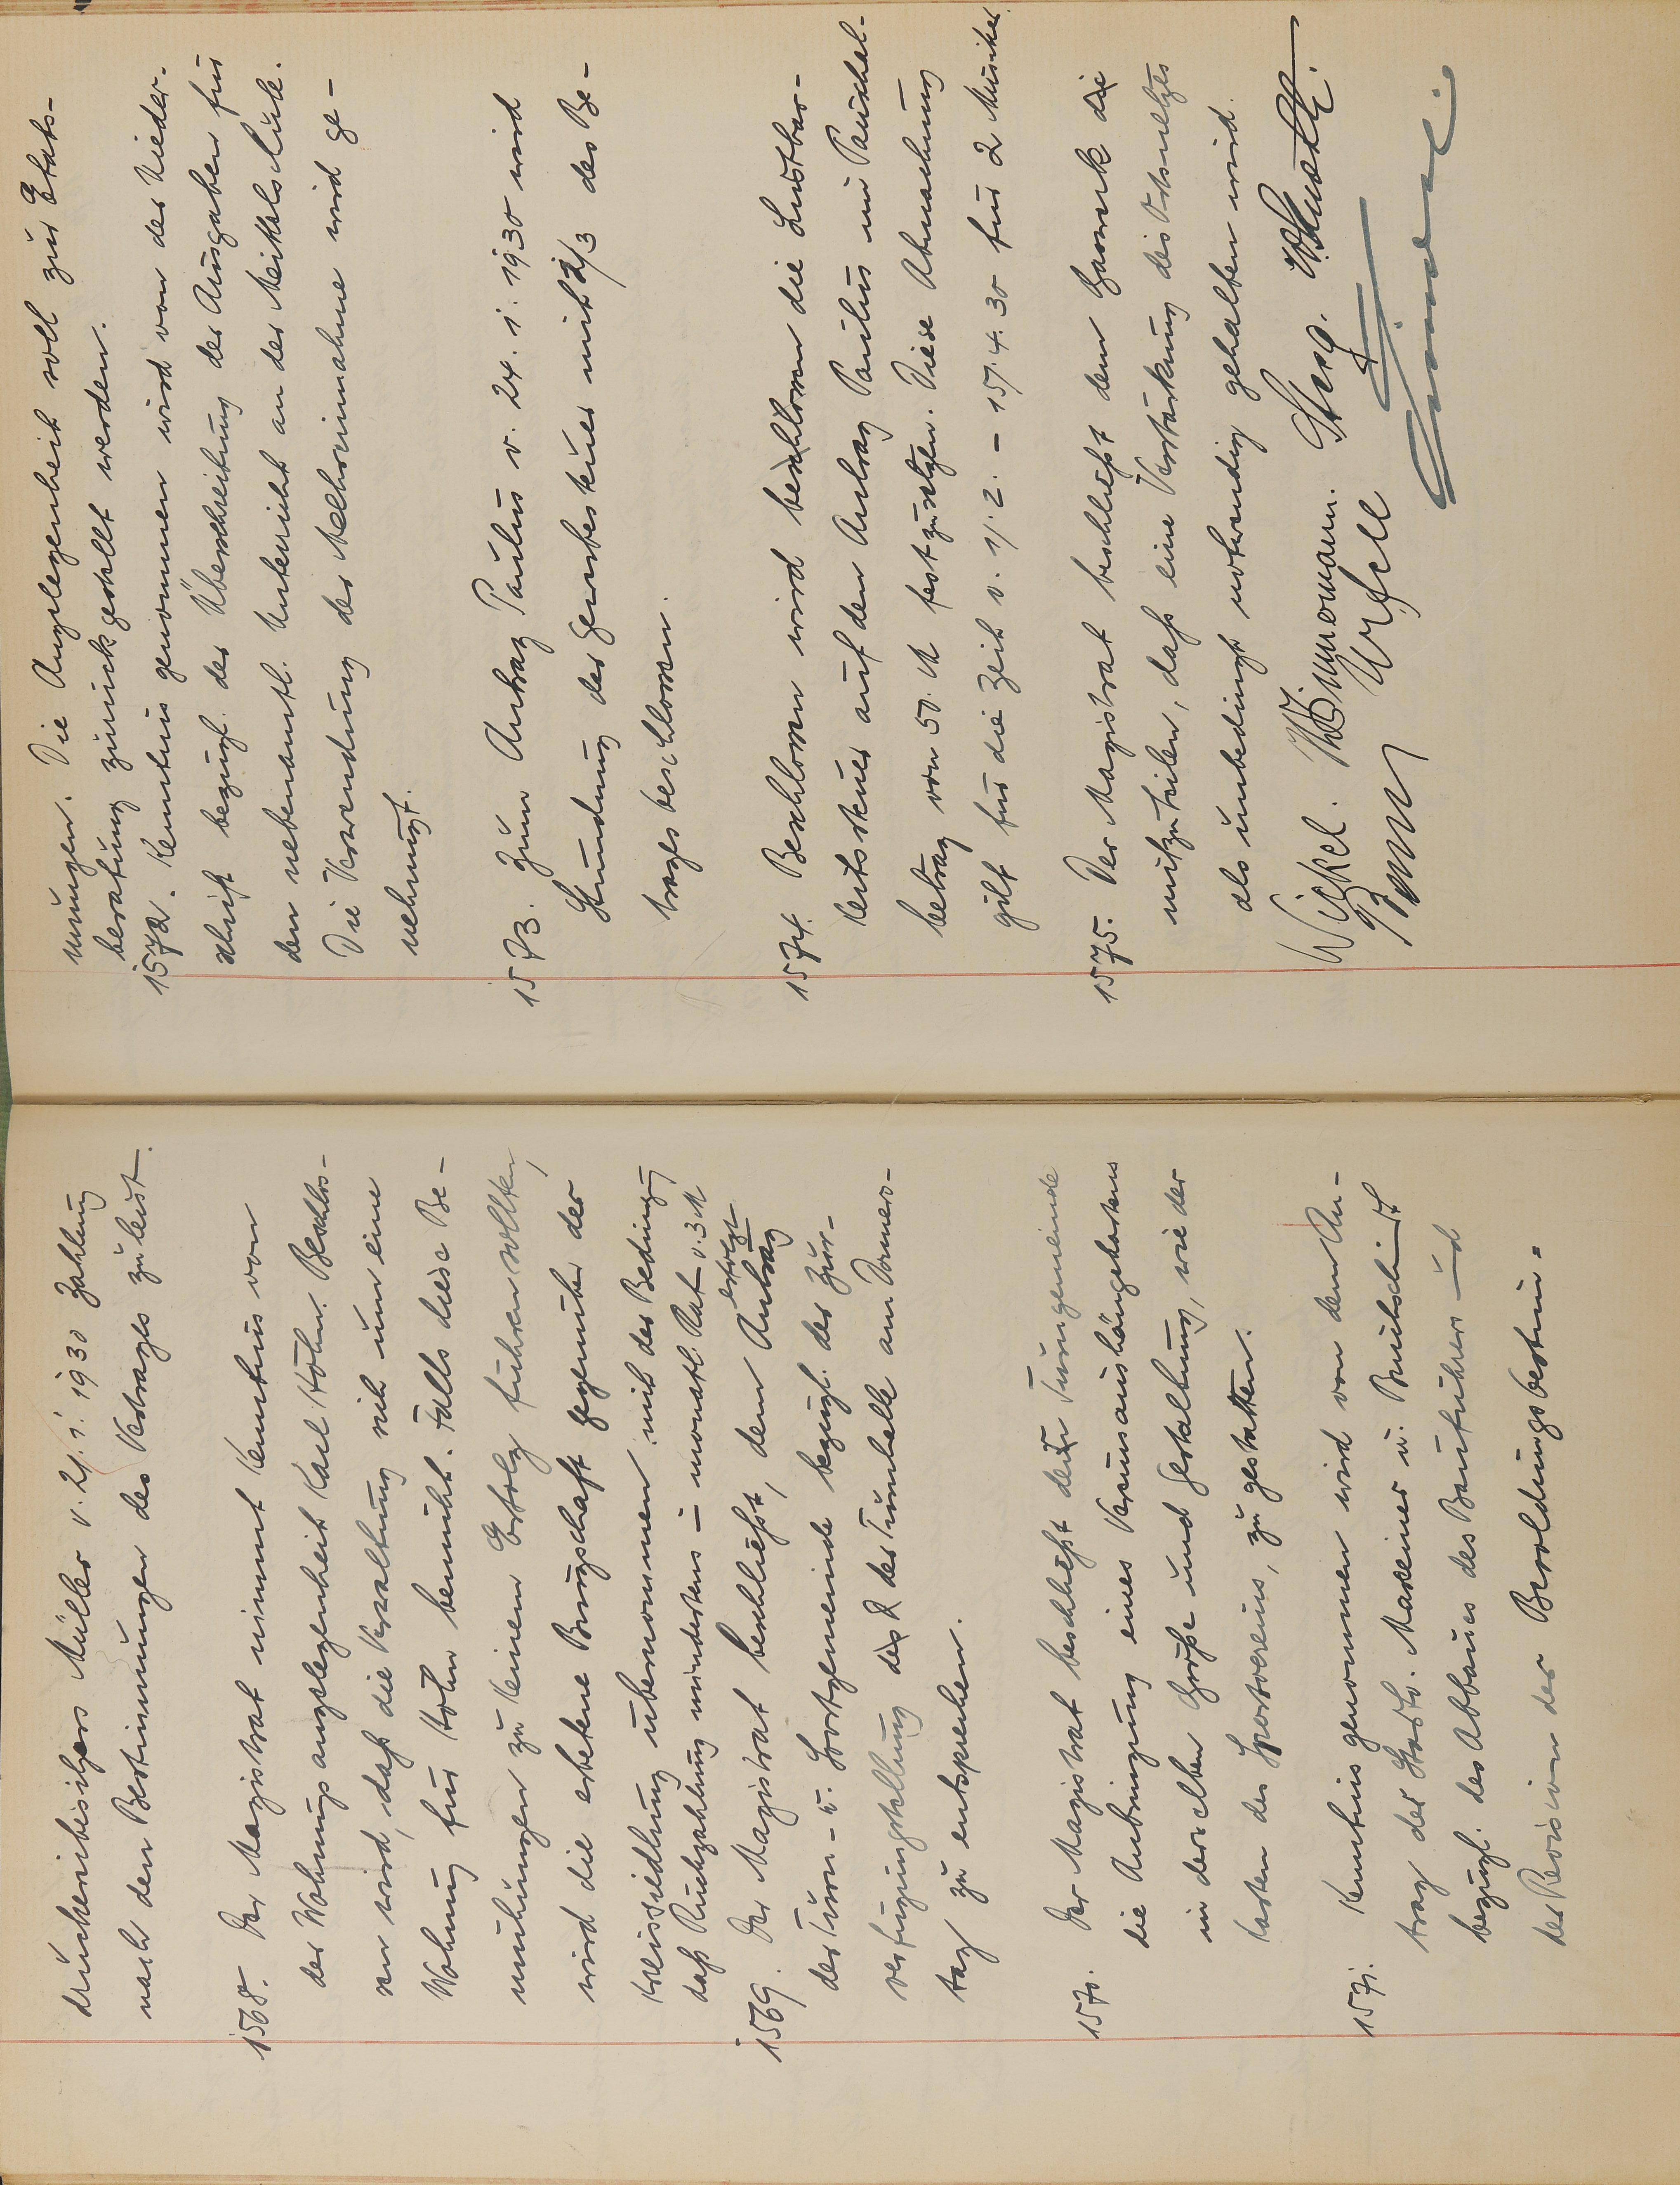 druckereibesitzers Müller v. 21.1.1930 Zahlung
nach den Bestimmungen des Vertrages zu leist.
1568. Der Magistrat nimmt Kenntnis von
der Wohnungsangelegenheit Karl Höhn. Beschlos-
sen wird, daß die Verwaltung sich um eine
Wohnung für Höhn bemüht. Falls diese Be-
mühungen zu keinem Erfolg führen sollten,
wird die erbetene Bürgschaft gegenüber der
Kreissiedlung übernommen mit der Bedingung
daß Rückzahlung mindestens – monatl. Rat v. 3 M
erfolgt
1569. Der Magistrat beschließt, dem Antrag
der Turn- u. Sportgemeinde bezügl. der Zur-
verfügungstellung der Turnhalle am Donners-
tag zu entsprechen.
1570. Der Magistrat beschließt der Turngemeinde
die Anbringung eines Vereinsaushängekastens
in derselben Größe und Gestaltung, wie der
Kasten des Sportvereins, zu gestatten.
1571. Kenntnis genommen wird von dem An-
trag der Stadtv. u.
bezügl. des Abbaues des Bauführers und
der Revision der Besoldungsbestim-
mungen. Die Angelegenheit soll zur Etats-
beratung zurückgestellt werden.
1572. Kenntnis genommen wird von der Nieder-
schrift bezügl. der Überschreitung der Ausgaben für
den nebenamtl. Unterricht an der Mittelschule.
Die Verwendung der Mehreinnahme wird ge-
nehmigt.
1573. Zum Antrag Paulus v. 24.1.1930 wird
Stundung der Gewerbesteuer mit 2/3 des Be-
trages beschlossen.
1574. Beschlossen wird die Lustbar-
keitssteuer auf den Antrag Paulus im Pauschal-
betrag von 50. M festzusetzen. Diese Abmachung
gilt für die Zeit v. 1/.2. – 15/4.30 für 2 Musiker.
1575. Der Magistrat beschließt dem Gaswerk
mitzuteilen, daß eine Verstärkung des Ortsnetzes
als unbedingt notwendig gehalten wird.